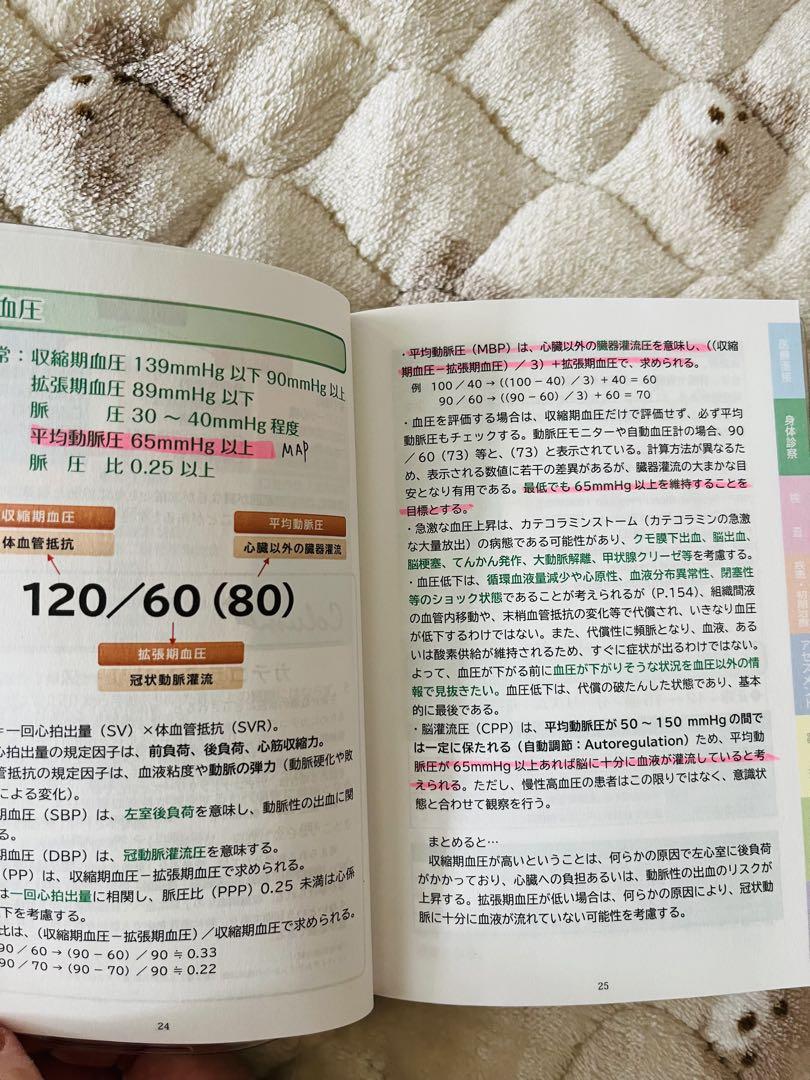 血圧
常：収縮期血圧 139mmHg 以下 90mmHg 以上
拡張期血圧 89mmHg 以下
脈 圧 30 ～ 40mmHg 程度
平均動脈圧 65mmHg 以上 MAP
脈 圧 比 0.25 以上
収縮期血圧
体血管抵抗
平均動脈圧
心臓以外の臓器灌流
120／60（80）
拡張期血圧
冠状動脈灌流
＝一回心拍出量（SV）×体血管抵抗（SVR）。
心拍出量の規定因子は、前負荷、後負荷、心筋収縮力。
管抵抗の規定因子は、血液粘度や動脈の弾力（動脈硬化や敗
による変化）。
期血圧（SBP）は、左室後負荷を意味し、動脈性の出血に関
る。
期血圧（DBP）は、冠動脈灌流圧を意味する。
（PP）は、収縮期血圧－拡張期血圧で求められる。
は一回心拍出量に相関し、脈圧比（PPP）0.25 未満は心係
下を考慮する。
比は、（収縮期血圧－拡張期血圧）／収縮期血圧で求められる。
90／60 →（90 － 60）／90 ≒ 0.33
90／70 →（90 － 70）／90 ≒ 0.22
24
・平均動脈圧（MBP）は、心臓以外の臓器灌流圧を意味し、(（収縮
期血圧－拡張期血圧）／ 3）＋拡張期血圧で、求められる。
例 100／40 →（(100 － 40）／3）＋ 40 ＝ 60
90／60 →（(90 － 60）／3）＋ 60 ＝ 70
・血圧を評価する場合は、収縮期血圧だけで評価せず、必ず平均
動脈圧もチェックする。動脈圧モニターや自動血圧計の場合、90
／60（73）等と、（73）と表示されている。計算方法が異なるた
め、表示される数値に若干の差異があるが、臓器灌流の大まかな目
安となり有用である。最低でも 65mmHg 以上を維持することを
目標とする。
・急激な血圧上昇は、カテコラミンストーム（カテコラミンの急激
な大量放出）の病態である可能性があり、クモ膜下出血、脳出血、
脳梗塞、てんかん発作、大動脈解離、甲状腺クリーゼ等を考慮する。
・血圧低下は、循環血液量減少や心原性、血液分布異常性、閉塞性
等のショック状態であることが考えられるが（P.154）、組織間液
の血管内移動や、末梢血管抵抗の変化等で代償され、いきなり血圧
が低下するわけではない。また、代償性に頻脈となり、血液、ある
いは酸素供給が維持されるため、すぐに症状が出るわけではない。
よって、血圧が下がる前に血圧が下がりそうな状況を血圧以外の情
報で見抜きたい。血圧低下は、代償の破たんした状態であり、基本
的に最後である。
・脳灌流圧（CPP）は、平均動脈圧が 50 ～ 150 mmHg の間で
は一定に保たれる（自動調節：Autoregulation）ため、平均動
脈圧が 65mmHg 以上あれば脳に十分に血液が灌流していると考
えられる。ただし、慢性高血圧の患者はこの限りではなく、意識状
態と合わせて観察を行う。
まとめると…
収縮期血圧が高いということは、何らかの原因で左心室に後負荷
がかかっており、心臓への負担あるいは、動脈性の出血のリスクが
上昇する。拡張期血圧が低い場合は、何らかの原因により、冠状動
脈に十分に血液が流れていない可能性を考慮する。
25
医療面接
身体診察
検 査
疾患・初期治療
アセスメント